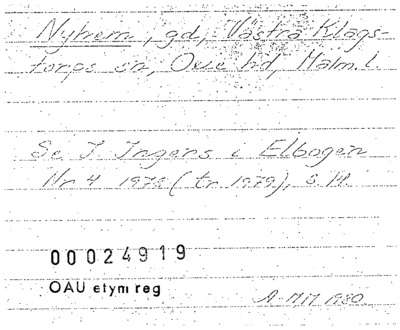 Nyhem, gd, Västra Klags-
torps sn, Oxie hd, Malm. l.
Se J Ingers i Elbogen
Nr 4 1978 (tr. 1979), s.
00024919
OAU etym reg
A-MM 1980